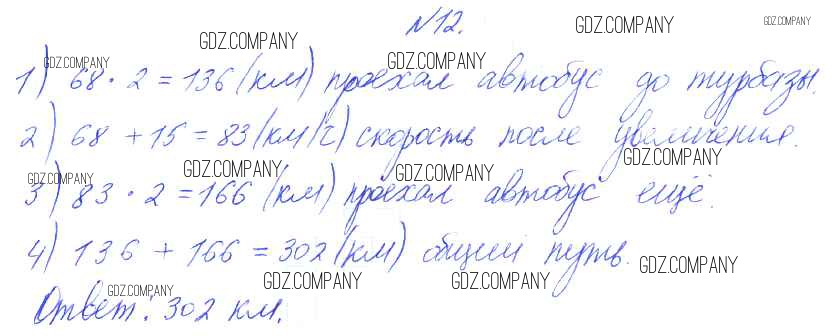 №12.
1) 68 · 2 = 136 (км) проехал автобус до турбазы.
2) 68 + 15 = 83 (км/ч) скорость после увеличения.
3) 83 · 2 = 166 (км) проехал автобус ещё.
4) 136 + 166 = 302 (км) общий путь.
Ответ: 302 км.
GDZ.COMPANY
GDZ.COMPANY
GDZ.COMPANY
GDZ.COMPANY
GDZ.COMPANY
GDZ.COMPANY
GDZ.COMPANY
GDZ.COMPANY
GDZ.COMPANY
GDZ.COMPANY
GDZ.COMPANY
GDZ.COMPANY
GDZ.COMPANY